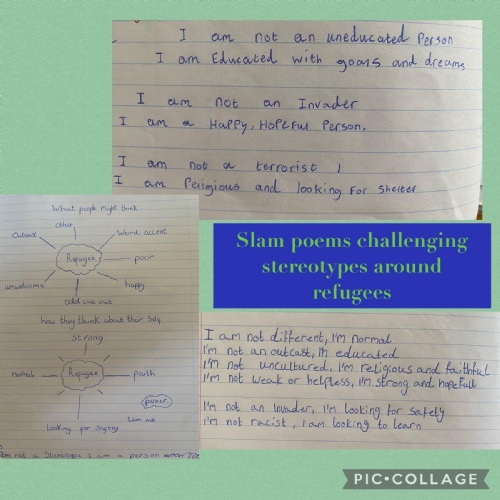 I am not an uneducated Person
I am Educated with goals and dreams
I am not an Invader
I am a Happy, Hopeful Person.
I am not a terrorist
I am Religious and looking For Shelter
What people might think
other
Outcast
Weird accent
Refugee
poor
unwelcome
happy
odd one out
how they think about their self
Strong
normal
Refugee
faith
power
Looking for safety
I am not
am not a Stereotype I am a person
Slam poems challenging
stereotypes around
refugees
I am not different, I'm normal
I'm not an outcast, I'm educated
I'm not uncultured, I'm religious and faithful
I'm not weak or helpless, I'm strong and hopefull
I'm not an invader, I'm looking for safety
I'm not racist, I am looking to learn
PIC•COLLAGE